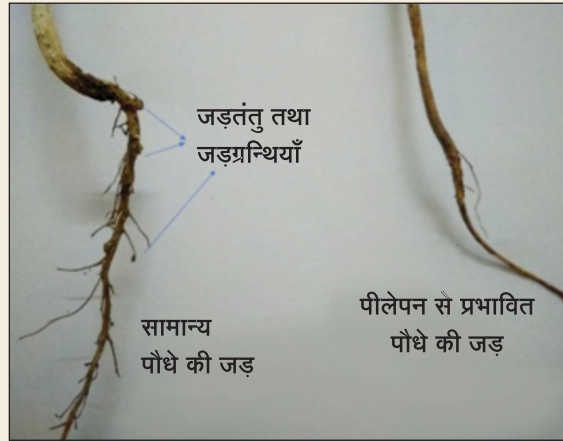 जड़तंतु तथा
जड़ग्रन्थियाँ
सामान्य
पौधे की जड़
पीलेपन से प्रभावित
पौधे की जड़